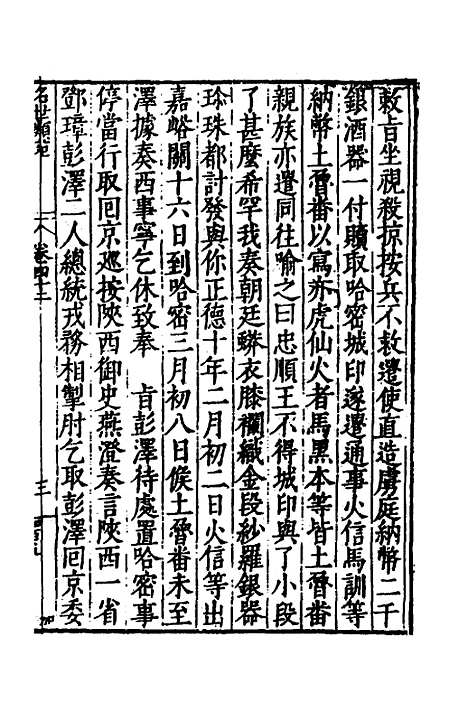 敕旨坐視殺掠按兵不救遷使直造虜庭納幣二千
銀酒器一付贖取哈密城印遂遷通事火信馬訓等
納幣土魯番以寫亦虎仙火者馬黑木等皆土魯番
親族亦遣同往喻之曰忠順王不得城印與了小段
了甚麼希罕我奏朝廷蟒衣膝襴織金段紗羅銀器
珍珠都討發與你正德十年二月初二日火信等出
嘉峪關十六日到哈密三月初八日候土魯番未至
澤據奏西事寧乞休致奉 旨彭澤待處置哈密事
停當行取回京巡按陝西御史燕澄奏言陝西一省
鄧璋彭澤二人總統戎務相掣肘乞取彭澤回京委
名世類苑 卷四十三 三